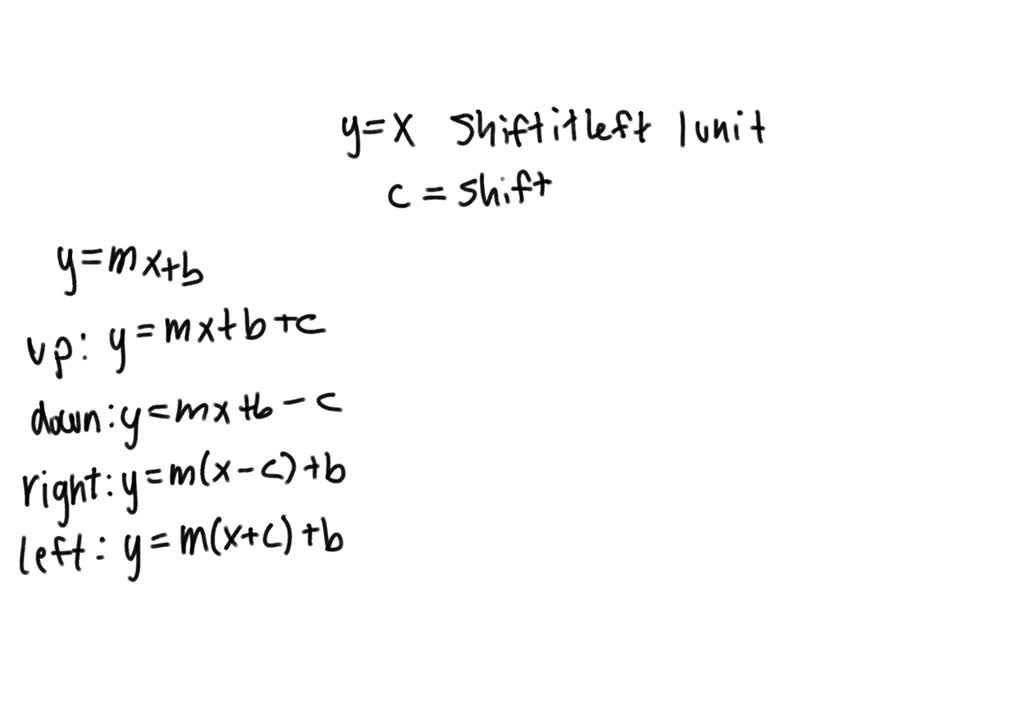 y=x shift it left 1 unit
c = shift
y=mx+b
up: y=mx+b+c
down: y=mx+b-c
right: y=m(x-c)+b
left: y=m(x+c)+b